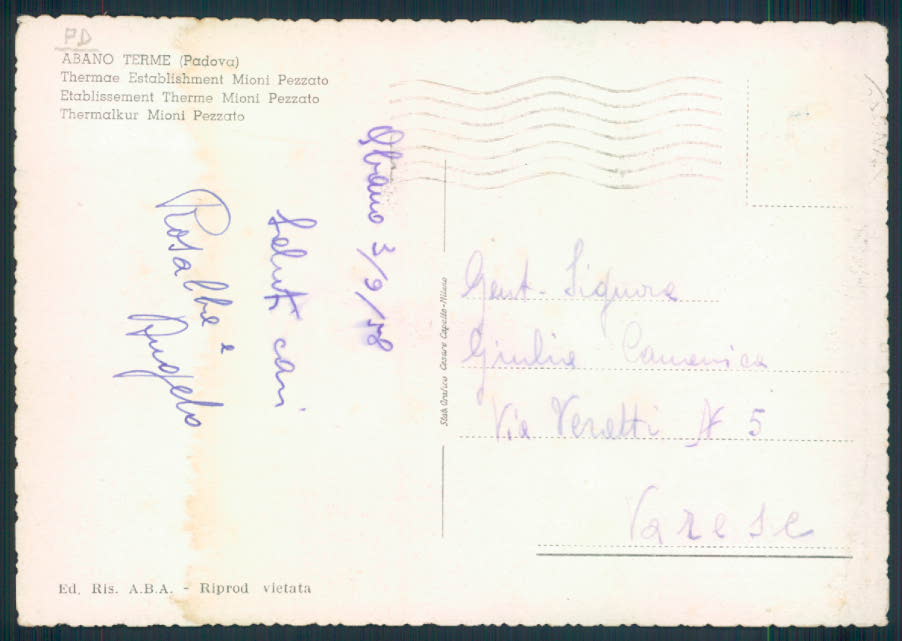 PD
ABANO TERME (Padova)
Thermae Establishment Mioni Pezzato
Etablissement Therme Mioni Pezzato
Thermalkur Mioni Pezzato
Abano 3/9/58
Saluti cari
Rosalba e
Angelo
Stab. Grafico Cesare Capello-Milano
Gent. Signora
Giulia
Via Veratti N 5
Varese
Ed. Ris. A.B.A. - Riprod vietata